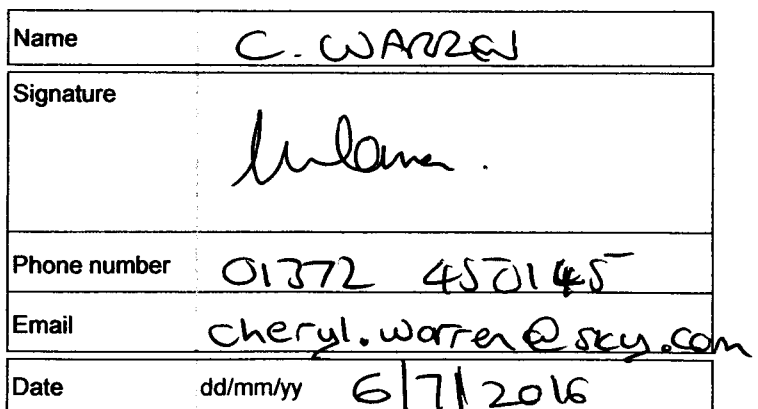 Name C. WARREN
Signature
Phone number 01372 450145
Email cheryl.warren@sky.com
Date dd/mm/yy 6/7/2016